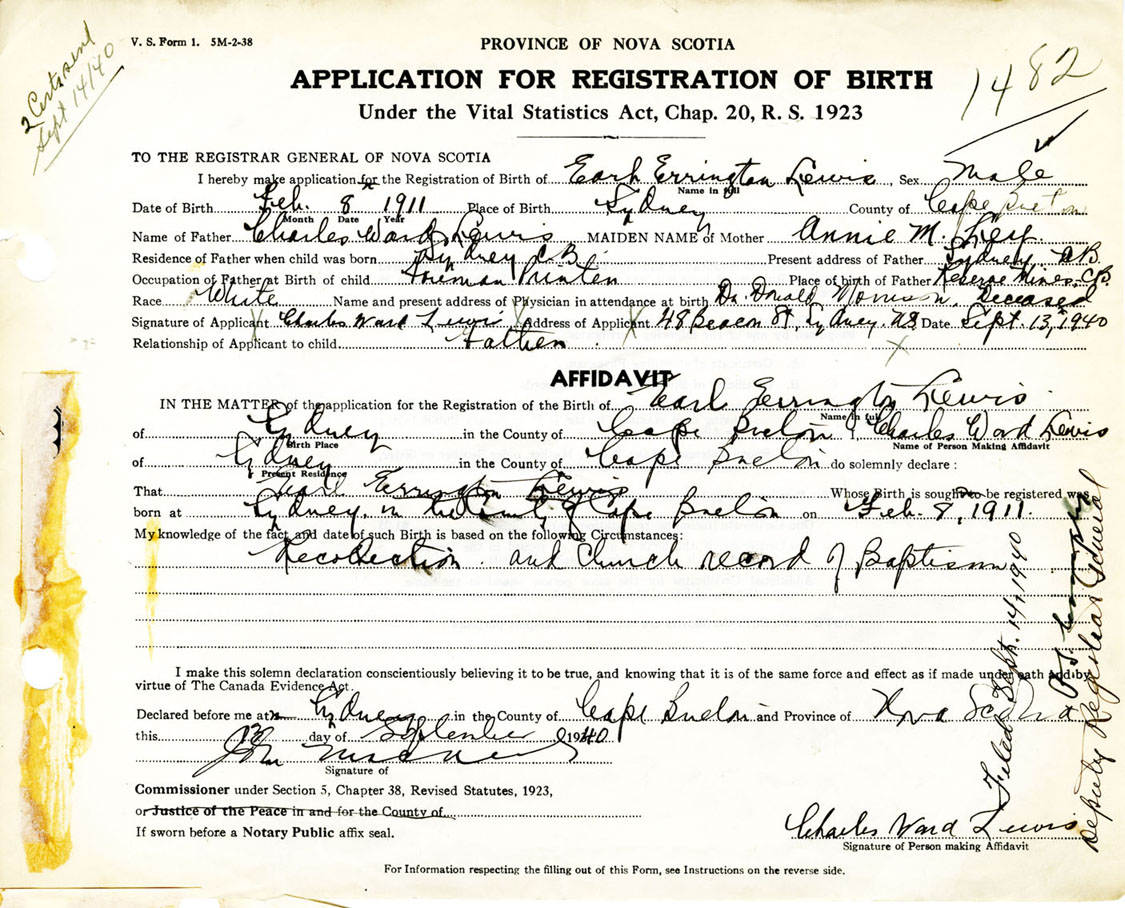 2 Certs sent
Sept 14/40
V. S. Form 1. 5M-2-38
PROVINCE OF NOVA SCOTIA
1482
APPLICATION FOR REGISTRATION OF BIRTH
Under the Vital Statistics Act, Chap. 20, R. S. 1923
TO THE REGISTRAR GENERAL OF NOVA SCOTIA
I hereby make application for the Registration of Birth of Earl Errington Lewis, Sex Male
Name in full
Date of Birth Feb. 8 1911 Place of Birth Sydney County of Cape Breton
Month Date Year
Name of Father Charles Ward Lewis MAIDEN NAME of Mother Annie M.
Residence of Father when child was born Sydney C.B. Present address of Father Sydney C.B.
Occupation of Father at Birth of child Foreman Printer Place of birth of Father Reserve Mines, C.B.
Race White Name and present address of Physician in attendance at birth Dr. Donald Morrison, Deceased
Signature of Applicant Charles Ward Lewis Address of Applicant 48 Beacon St, Sydney. N.S. Date Sept. 13, 1940
Relationship of Applicant to child Father
AFFIDAVIT
IN THE MATTER of the application for the Registration of the Birth of Earl Errington Lewis
Name in full
of Sydney in the County of Cape Breton, Charles Ward Lewis
Birth Place Name of Person Making Affidavit
of Sydney in the County of Cape Breton do solemnly declare:
Present Residence
That Earl Errington Lewis Whose Birth is sought to be registered was
born at Sydney, in the County of Cape Breton on Feb. 8, 1911.
My knowledge of the fact and date of such Birth is based on the following Circumstances:
Recollection. and Church record of Baptism
I make this solemn declaration conscientiously believing it to be true, and knowing that it is of the same force and effect as if made under oath and by
virtue of The Canada Evidence Act.
Declared before me at Sydney in the County of Cape Breton and Province of Nova Scotia
this 13 day of September 1940
John
Signature of
Commissioner under Section 5, Chapter 38, Revised Statutes, 1923,
or Justice of the Peace in and for the County of
If sworn before a Notary Public affix seal.
Charles Ward Lewis
Signature of Person making Affidavit
For Information respecting the filling out of this Form, see Instructions on the reverse side.
Filed Sept. 14, 1940
Deputy Registrar General